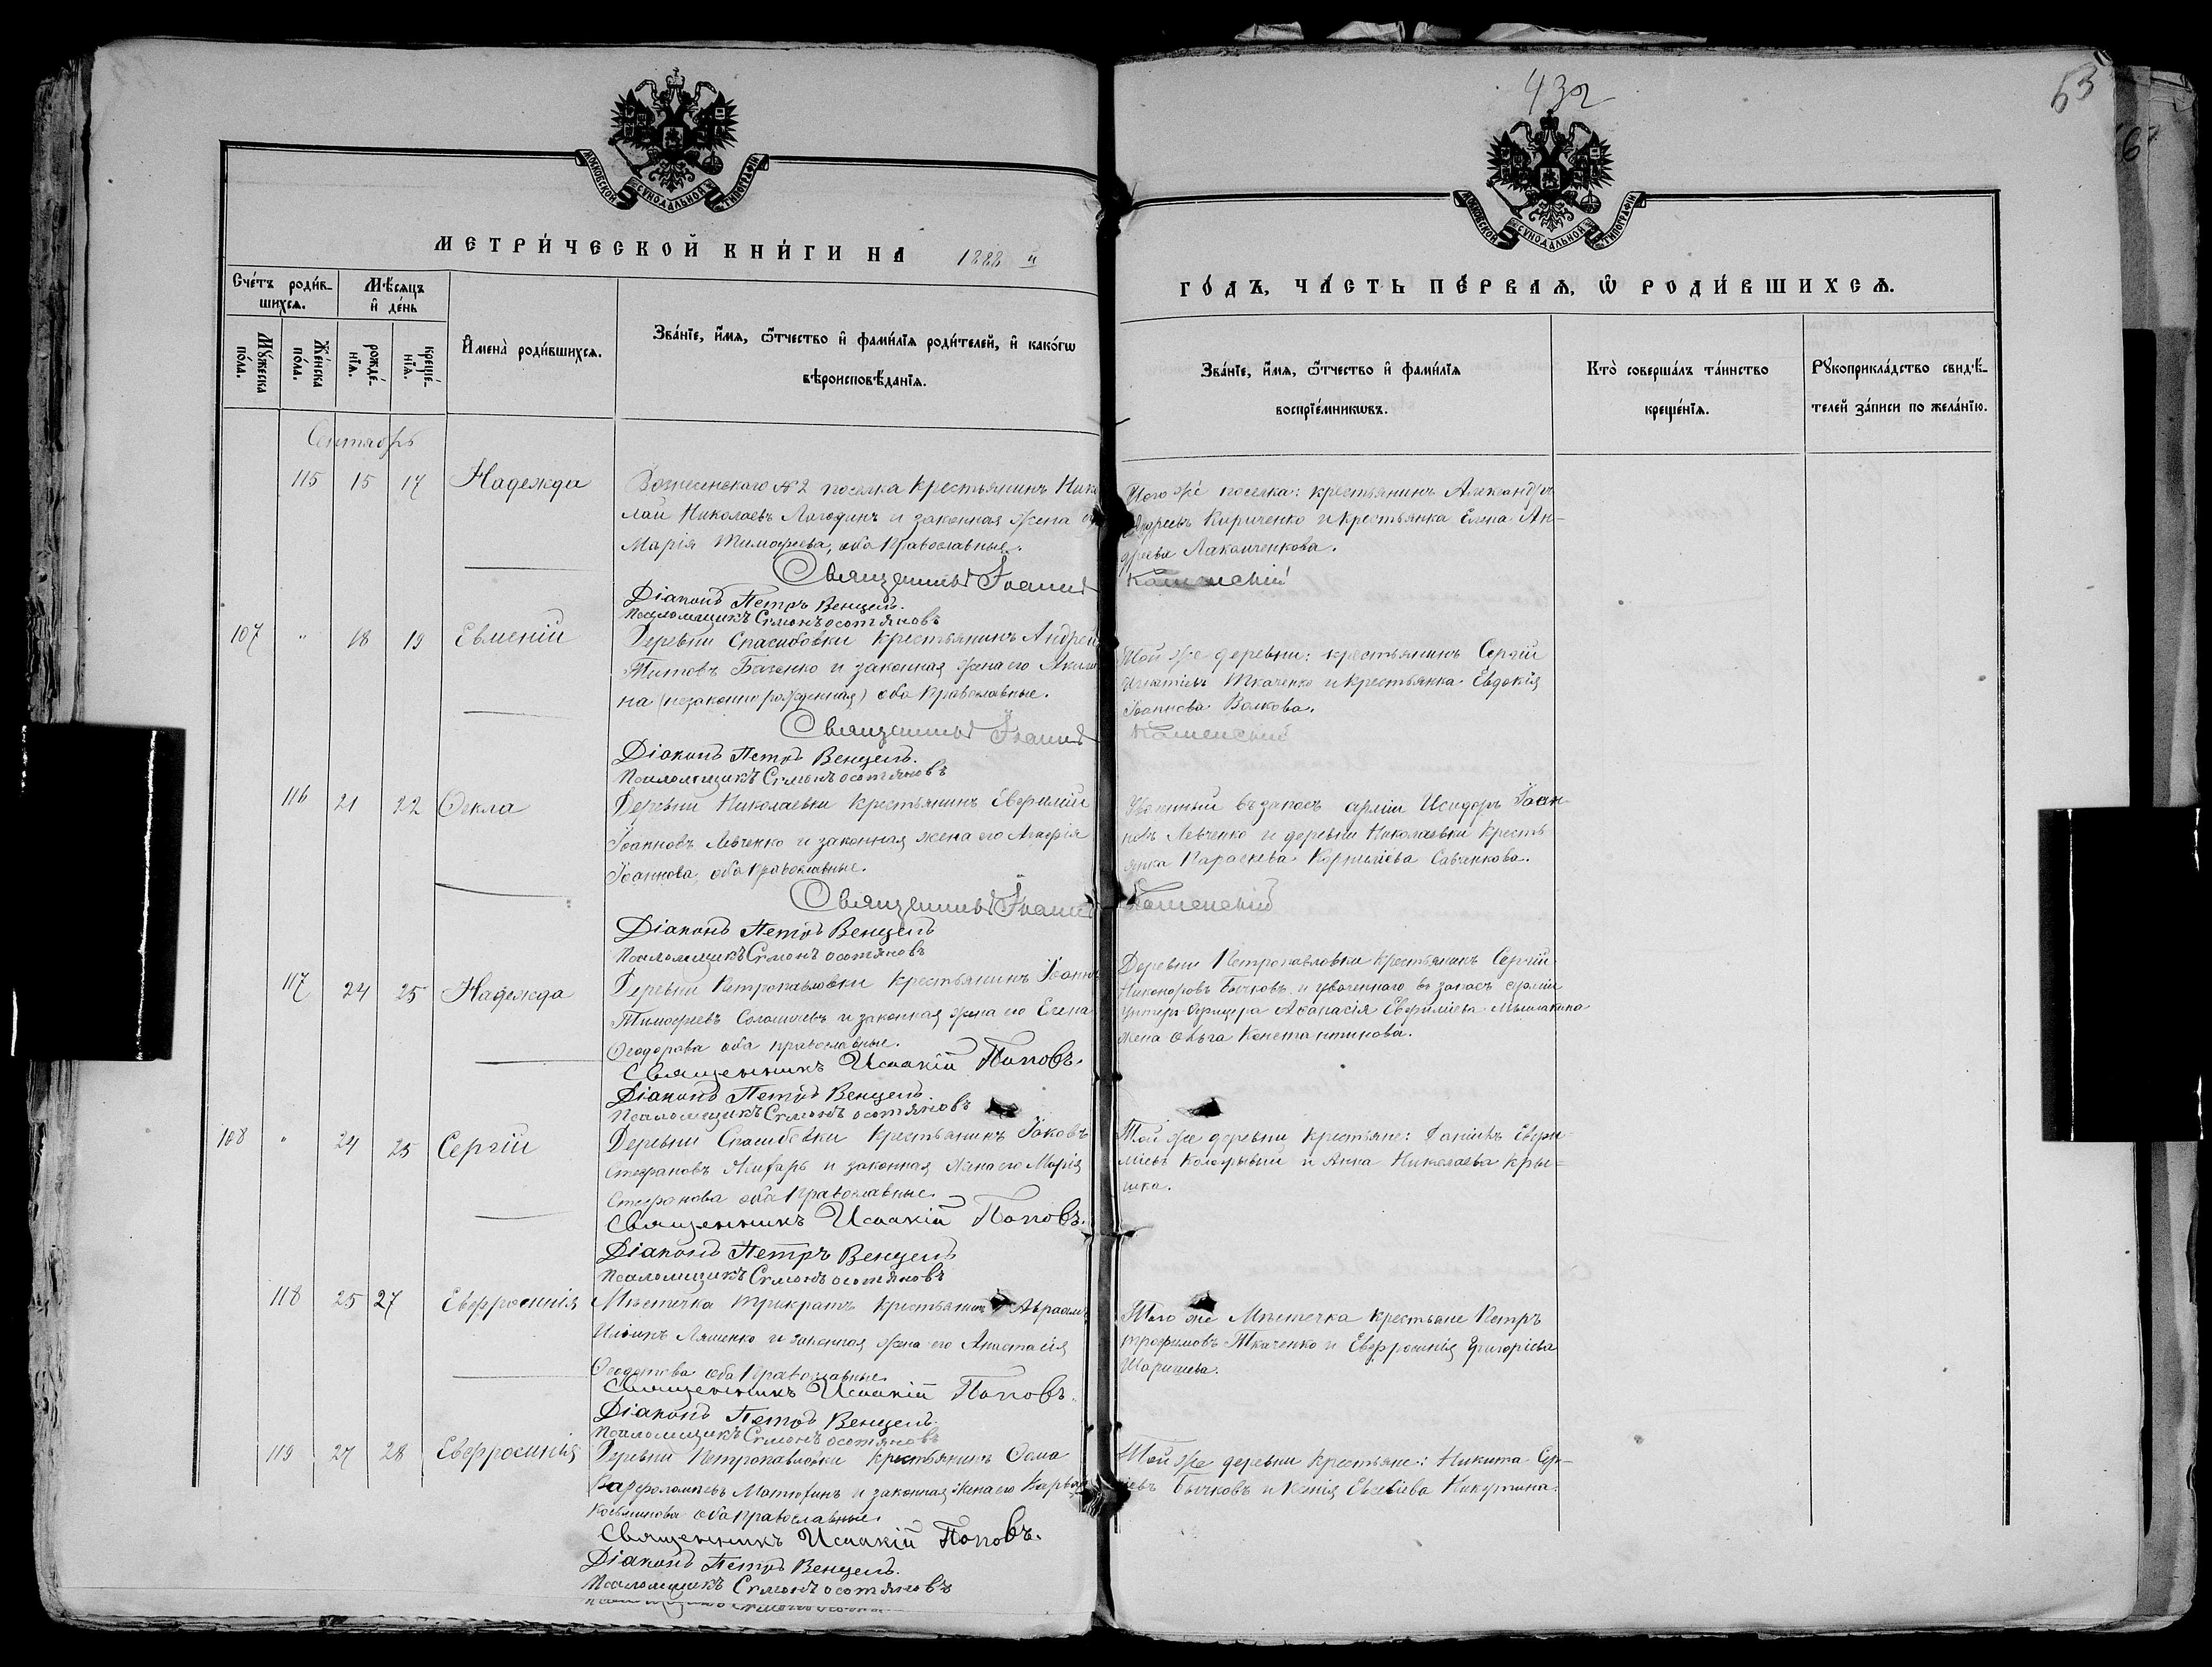 432
63
МОСКОВСКОЙ СѴНОДАЛЬНОЙ ТИПОГРАФІИ
МОСКОВСКОЙ СѴНОДАЛЬНОЙ ТИПОГРАФІИ
МЕТРИ́ЧЕСКОЙ КНИ́ГИ НА 1888 й
ГО́ДЪ, ЧА́СТЬ ПЕ́РВАѦ, Ѡ РОДИ́ВШИХСѦ.
Сче́тъ роди́в-
шихсѧ.
Мѣ́сѧцъ
и҆ де́нь
Мꙋ́жеска
по́ла.
Же́нска
по́ла.
рожде́-
нїѧ.
креще́-
нїѧ.
И҆мена̀ роди́вшихсѧ.
Зва́нїе, и҆́мѧ, ѻ҆́тчество и҆ фами́лїѧ роди́телей, и҆ како́гѡ
вѣроисповѣ́данїѧ.
Зва́нїе, и҆́мѧ, ѻ҆́тчество и҆ фами́лїѧ
воспрїе́мникѡвъ.
Кто̀ соверша́лъ та́инство
креще́нїѧ.
Рꙋкоприкла́дство свидѣ́-
телей за́писи по жела́нїю.
Сентябрь
115 15 17 Надежда Вознесенскаго №2 поселка крестьянинъ Нико
лай Николаевъ Лагодинъ и законная жена
Марія Тимофеева, оба Православные.
Того же поселка: крестьянинъ Александръ
Андреевъ Кириченко и крестьянка Елена Ан-
дреева
Священникъ Іоаннъ Каменскій
Діаконъ Петръ Венцель.
Псаломщикъ
107 " 18 19 Евменій Деревни Спасибовки крестьянинъ Андрей
Титовъ Баченко и законная жена его Акили
на (незаконнорожденная) оба Православные.
Той же деревни: крестьянинъ Сергій
Игнатіевъ Ткаченко и крестьянка Евдокія
Іоаннова Волкова.
Священникъ Іоаннъ Каменскій
Діаконъ Петръ Венцель.
Псаломщикъ
116 21 22 Ѳекла Деревни Николаевки крестьянинъ Евфимій
Іоанновъ Левченко и законная жена его Агафія
Іоаннова, оба Православные.
Уволенный въ запасъ арміи Исидоръ Іоан-
новъ Левченко и деревни Николаевки кресть-
янка Параскева Корниліева Савченкова.
Священникъ Іоаннъ Каменскій
Діаконъ Петръ Венцель
Псаломщикъ
117 24 25 Надежда Деревни Петропавловки крестьянинъ Іоаннъ
Тимофеевъ и законная жена его Елена
Ѳеодорова оба православные.
Деревни Петропавловки крестьянинъ Сергій
Никоноровъ Бычковъ и уволеннаго въ запасъ арміи
унтеръ-офицера Аѳанасія Евфиміева Мышакина
жена Ольга Константинова.
Священникъ Исаакій Поповъ.
Діаконъ Петръ Венцель.
Псаломщикъ
108 " 24 25 Сергій Деревни Спасибовки крестьянинъ Іаковъ
Стефановъ и законная жена его Марія
Стефанова оба Православные.
Той же деревни крестьяне: Даніилъ Евфи-
міевъ и Анна Николаева Кры-
шка.
Священникъ Исаакій Поповъ.
Діаконъ Петръ Венцель
Псаломщикъ
118 25 27 Евфросинія Мѣстечка Трикратъ крестьянинъ Авраамъ
Ляшенко и законная жена его Анастасія
Ѳеодотова оба Православные.
Того же Мѣстечка крестьяне Петръ
Трофимовъ Ткаченко и Евфросинія Григоріева
Священникъ Исаакій Поповъ.
Діаконъ Петръ Венцель.
Псаломщикъ
119 27 28 Евфросинія Деревни Петропавловки крестьянинъ Ѳома
Варфоломеевъ Матюхинъ и законная жена его Варвара
оба православные.
Той же деревни крестьяне: Никита Сер-
гіевъ Бычковъ и Ксенія Евсевіева Никутина.
Священникъ Исаакій Поповъ.
Діаконъ Петръ Венцель.
Псаломщикъ